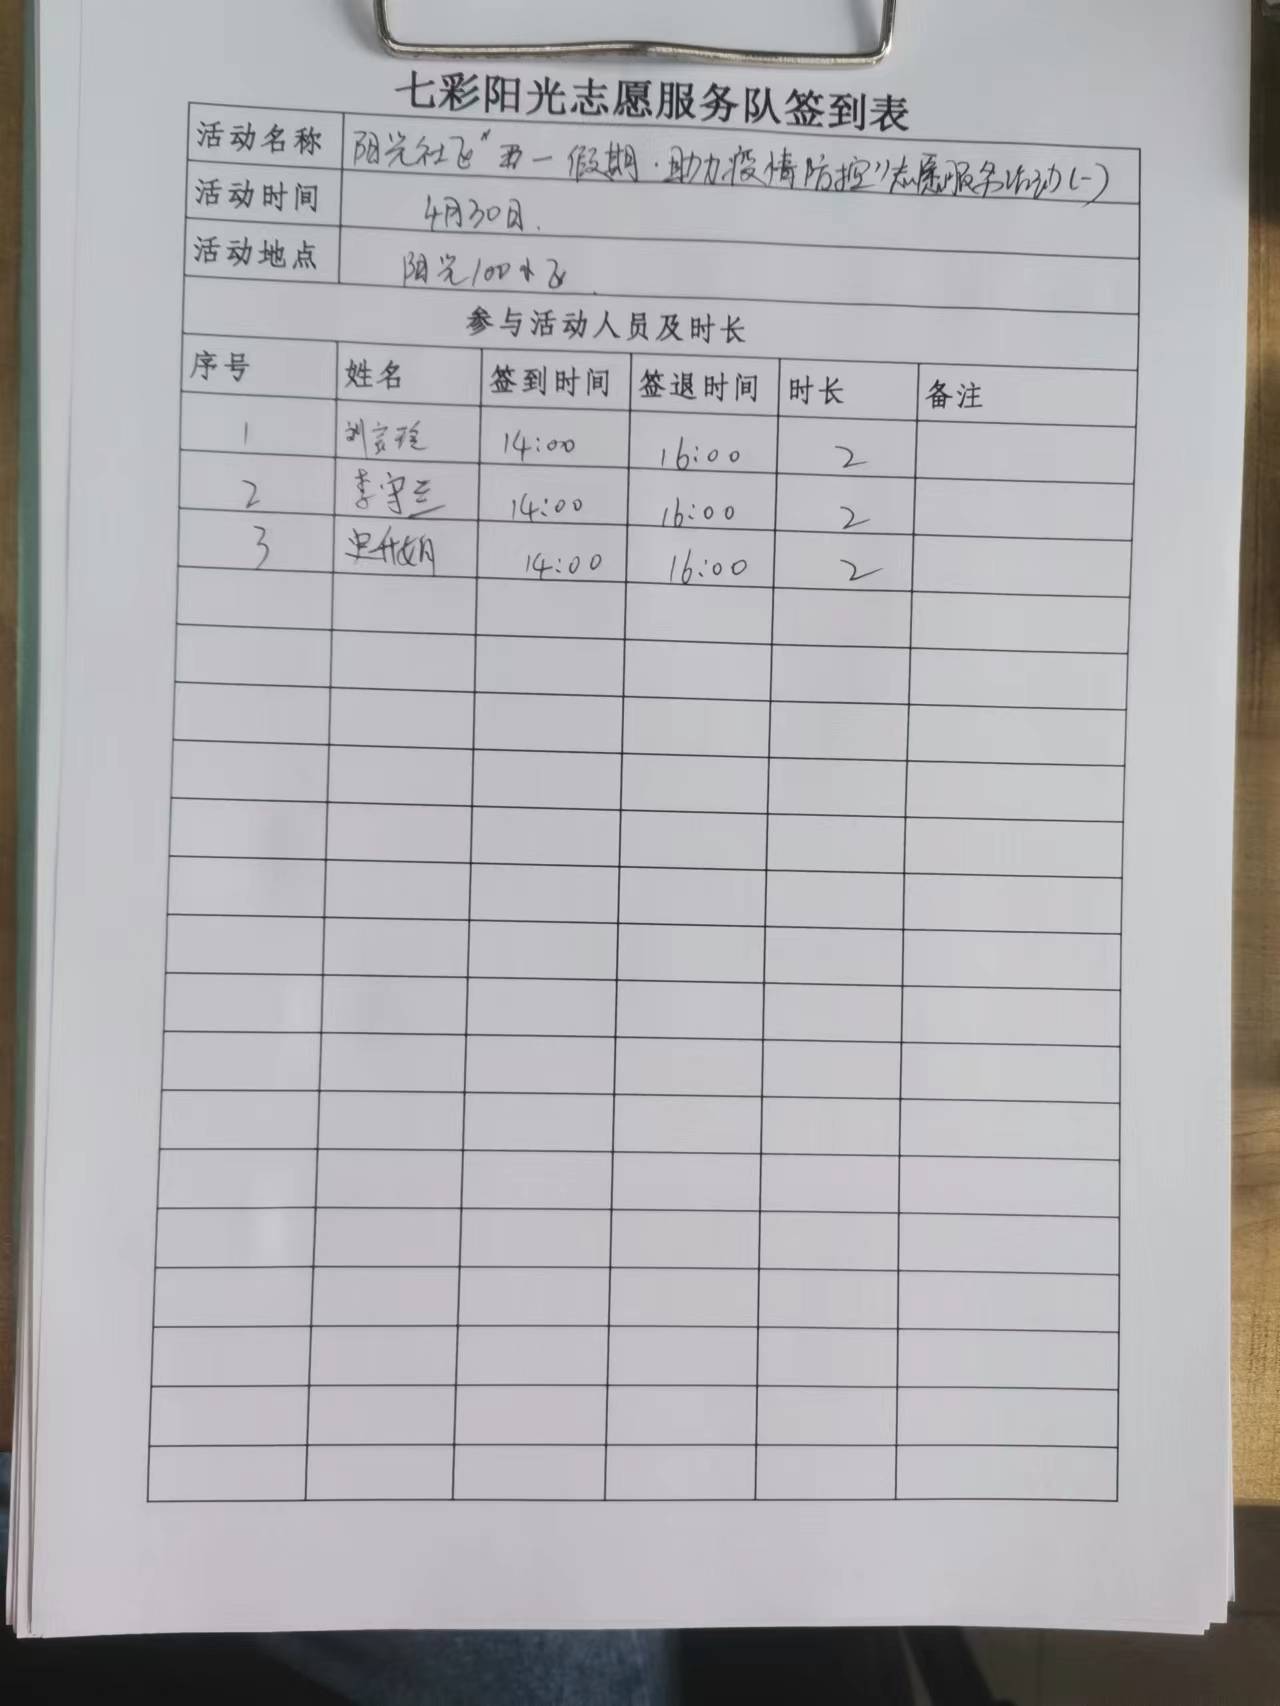 七彩阳光志愿服务队签到表
活动名称 阳光社区"五一假期·助力疫情防控"志愿服务活动(一)
活动时间 4月30日.
活动地点 阳光100小区.
参与活动人员及时长
序号 姓名 签到时间 签退时间 时长 备注
1 刘家 14:00 16:00 2
2 李守兰 14:00 16:00 2
3 史升 14:00 16:00 2